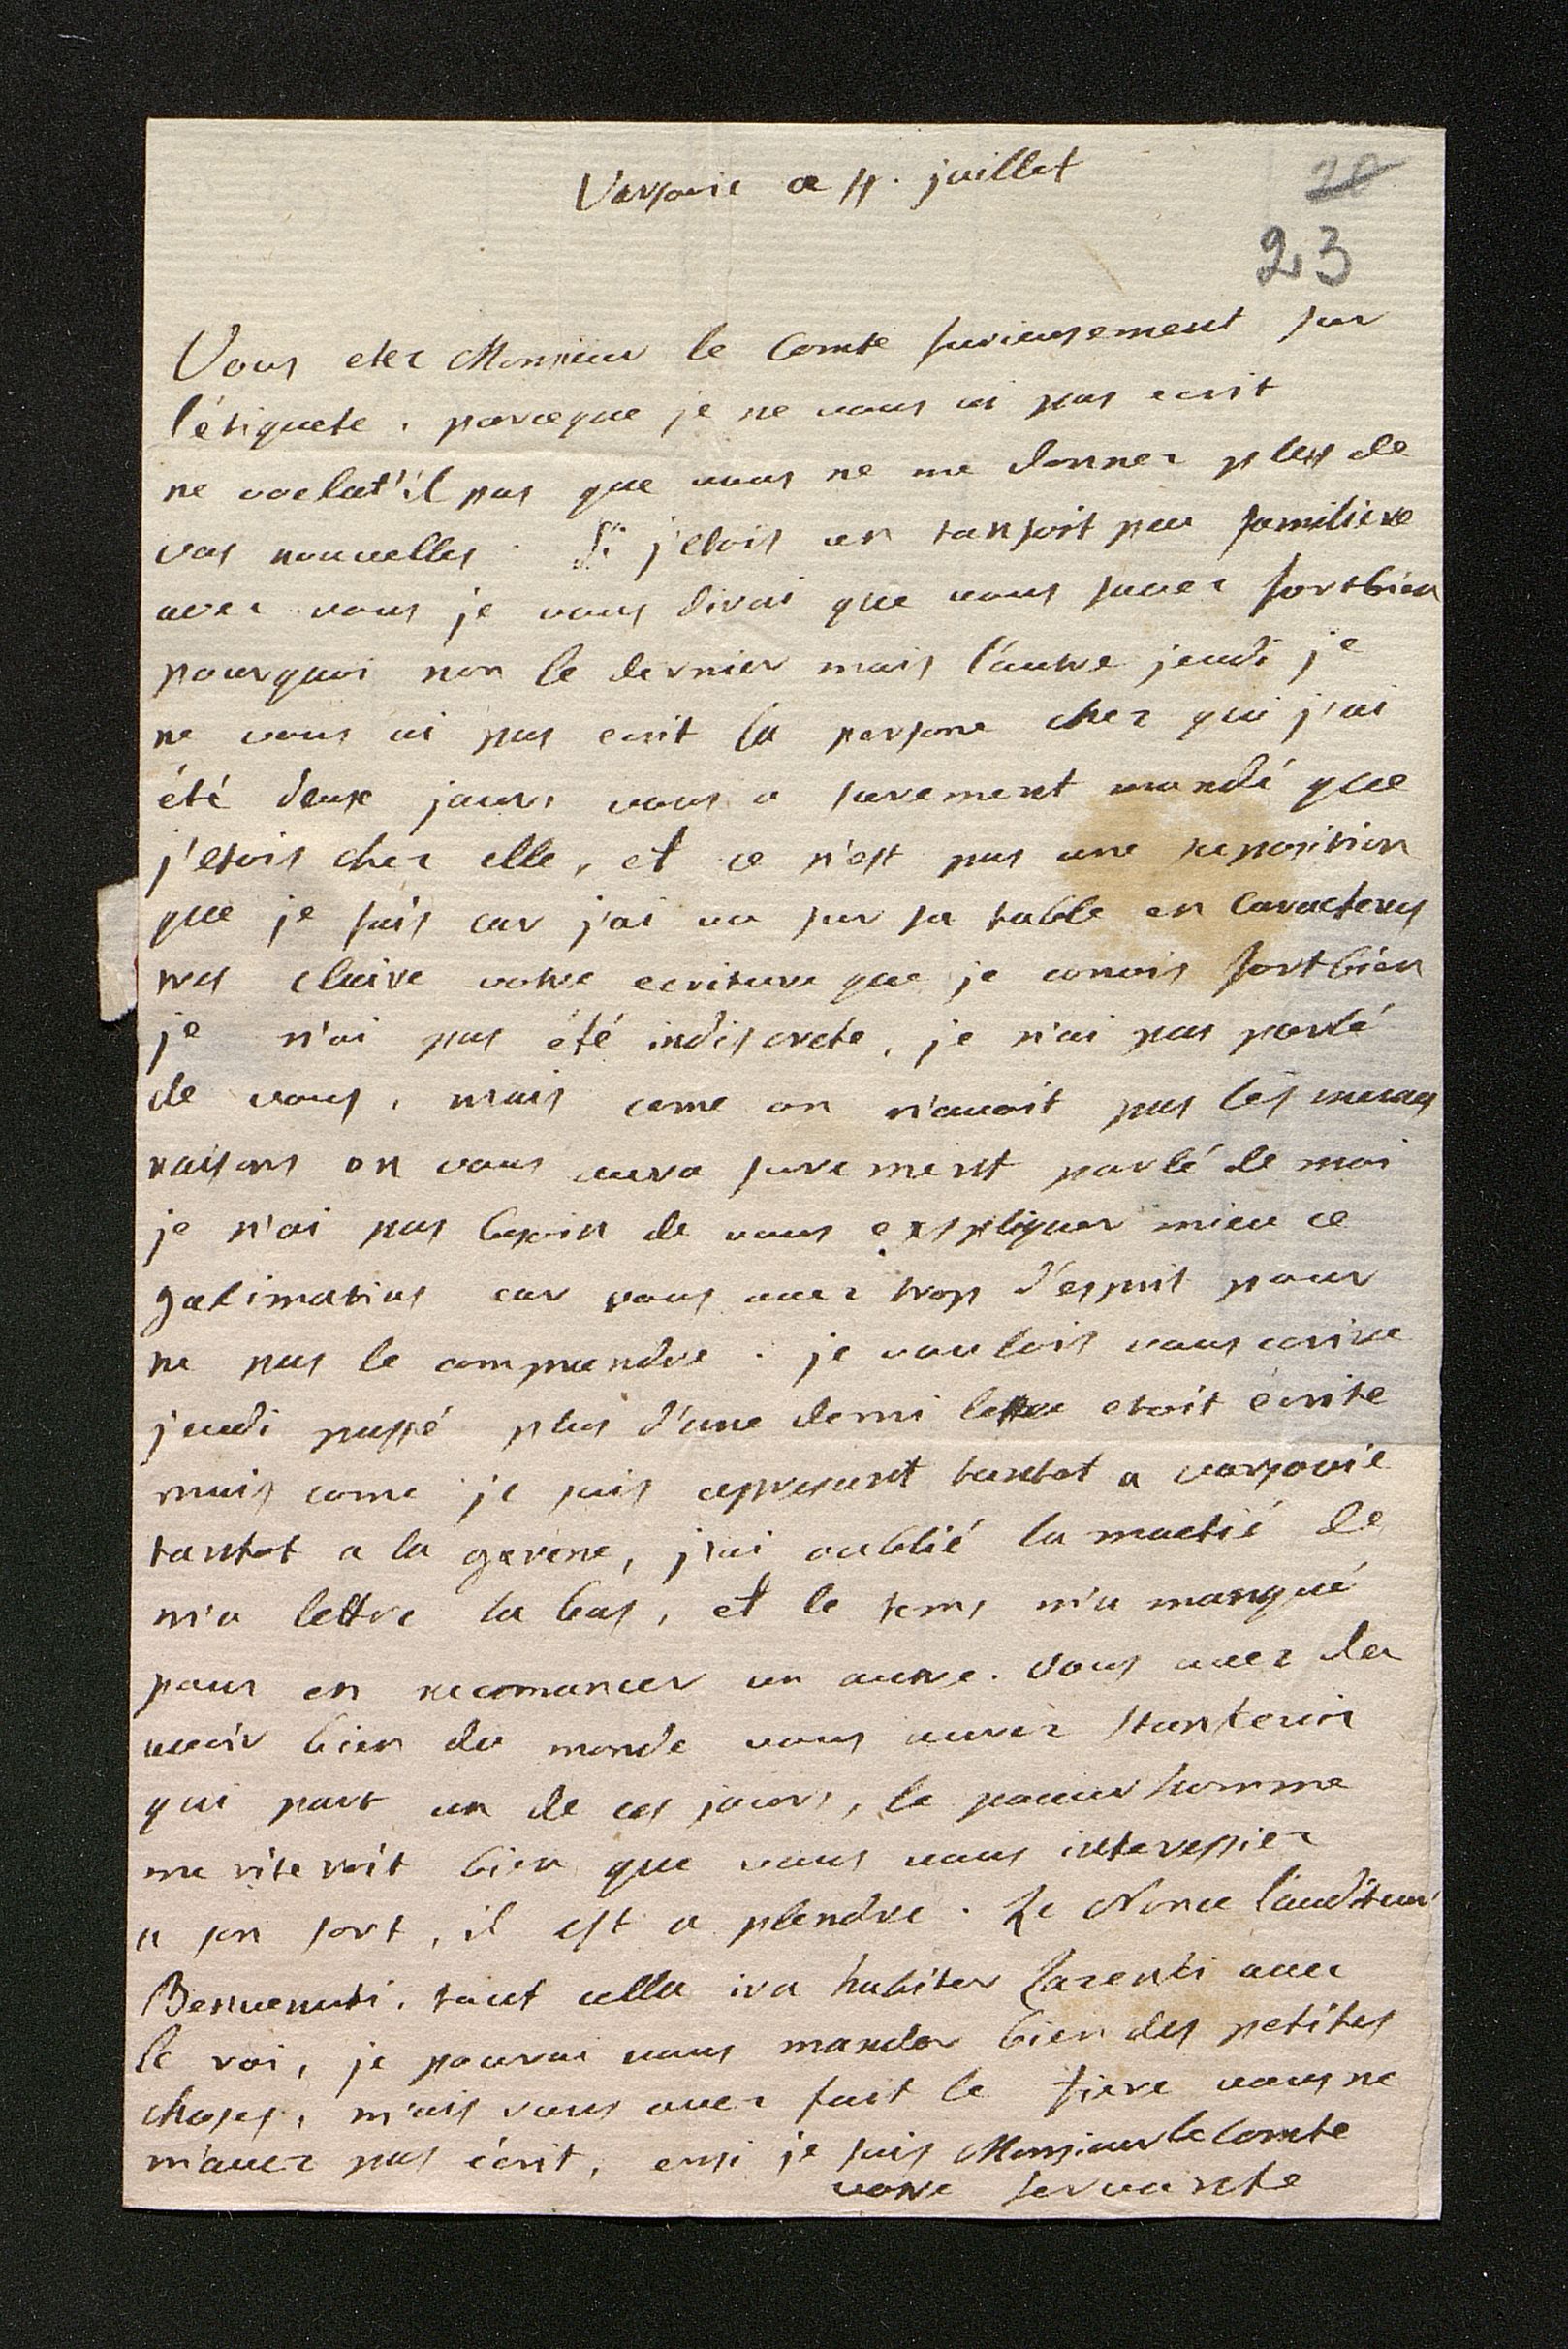 Varsovie ce 11. juillet
20
23
Vous etez Monsieur le Comte furieusement sur
l'étiquete, parceque je ne vous ai pas ecrit
ne voelat'il pas que vous ne me donnez pluss de
vos nouvelles. Si j'etois un tansoit peu familiere
avec vous je vous dirai que vous savez fortbien
pourquoi non le dernier mais l'autre jeudi je
ne vous ai pas ecrit la persone chez qui j'ai
été deux jours vous a surement mandé que
j'etois chez elle, et ce n'est pas une suposition
que je fais car j'ai vu sur sa table en caracteres
tres claire votre ecriture que je conois fortbien
je n'ai pas été indiscrete, je n'ai pas parlé
de vous, mais come on n'avoit pas les memes
raisons on vous aura surement parlé de moi
je n'ai pas besoin de vous expliquer mieu ce
galimatias car vous avez trop d'esprit pour
ne pas le comprendre. je voulois vous ecrire
jeudi passé plus d'une demi lettre etoit écrite
mais come je suis appresent tantot a varsovie
tantot a la garene, j'ai oublié la moetié de
m'a lettre la bas, et le tems m'a manqué
pour en recomancer un autre. vous avez du
avoir bien du monde vous aurez
qui part un de ces jours, le pauver homme
me riteroit bien que vous vous interessiez
a son sort, il est a plendre. Le Nonce l'auditeur
Benvenuti, tout cella ira habiter Lazenki avec
le roi, je pourai vous mander bien des petites
choses, m'ais vous avez fait le fiere vous ne
m'avez pas écrit, ensi je suis Monsieur le Comte
votre servante